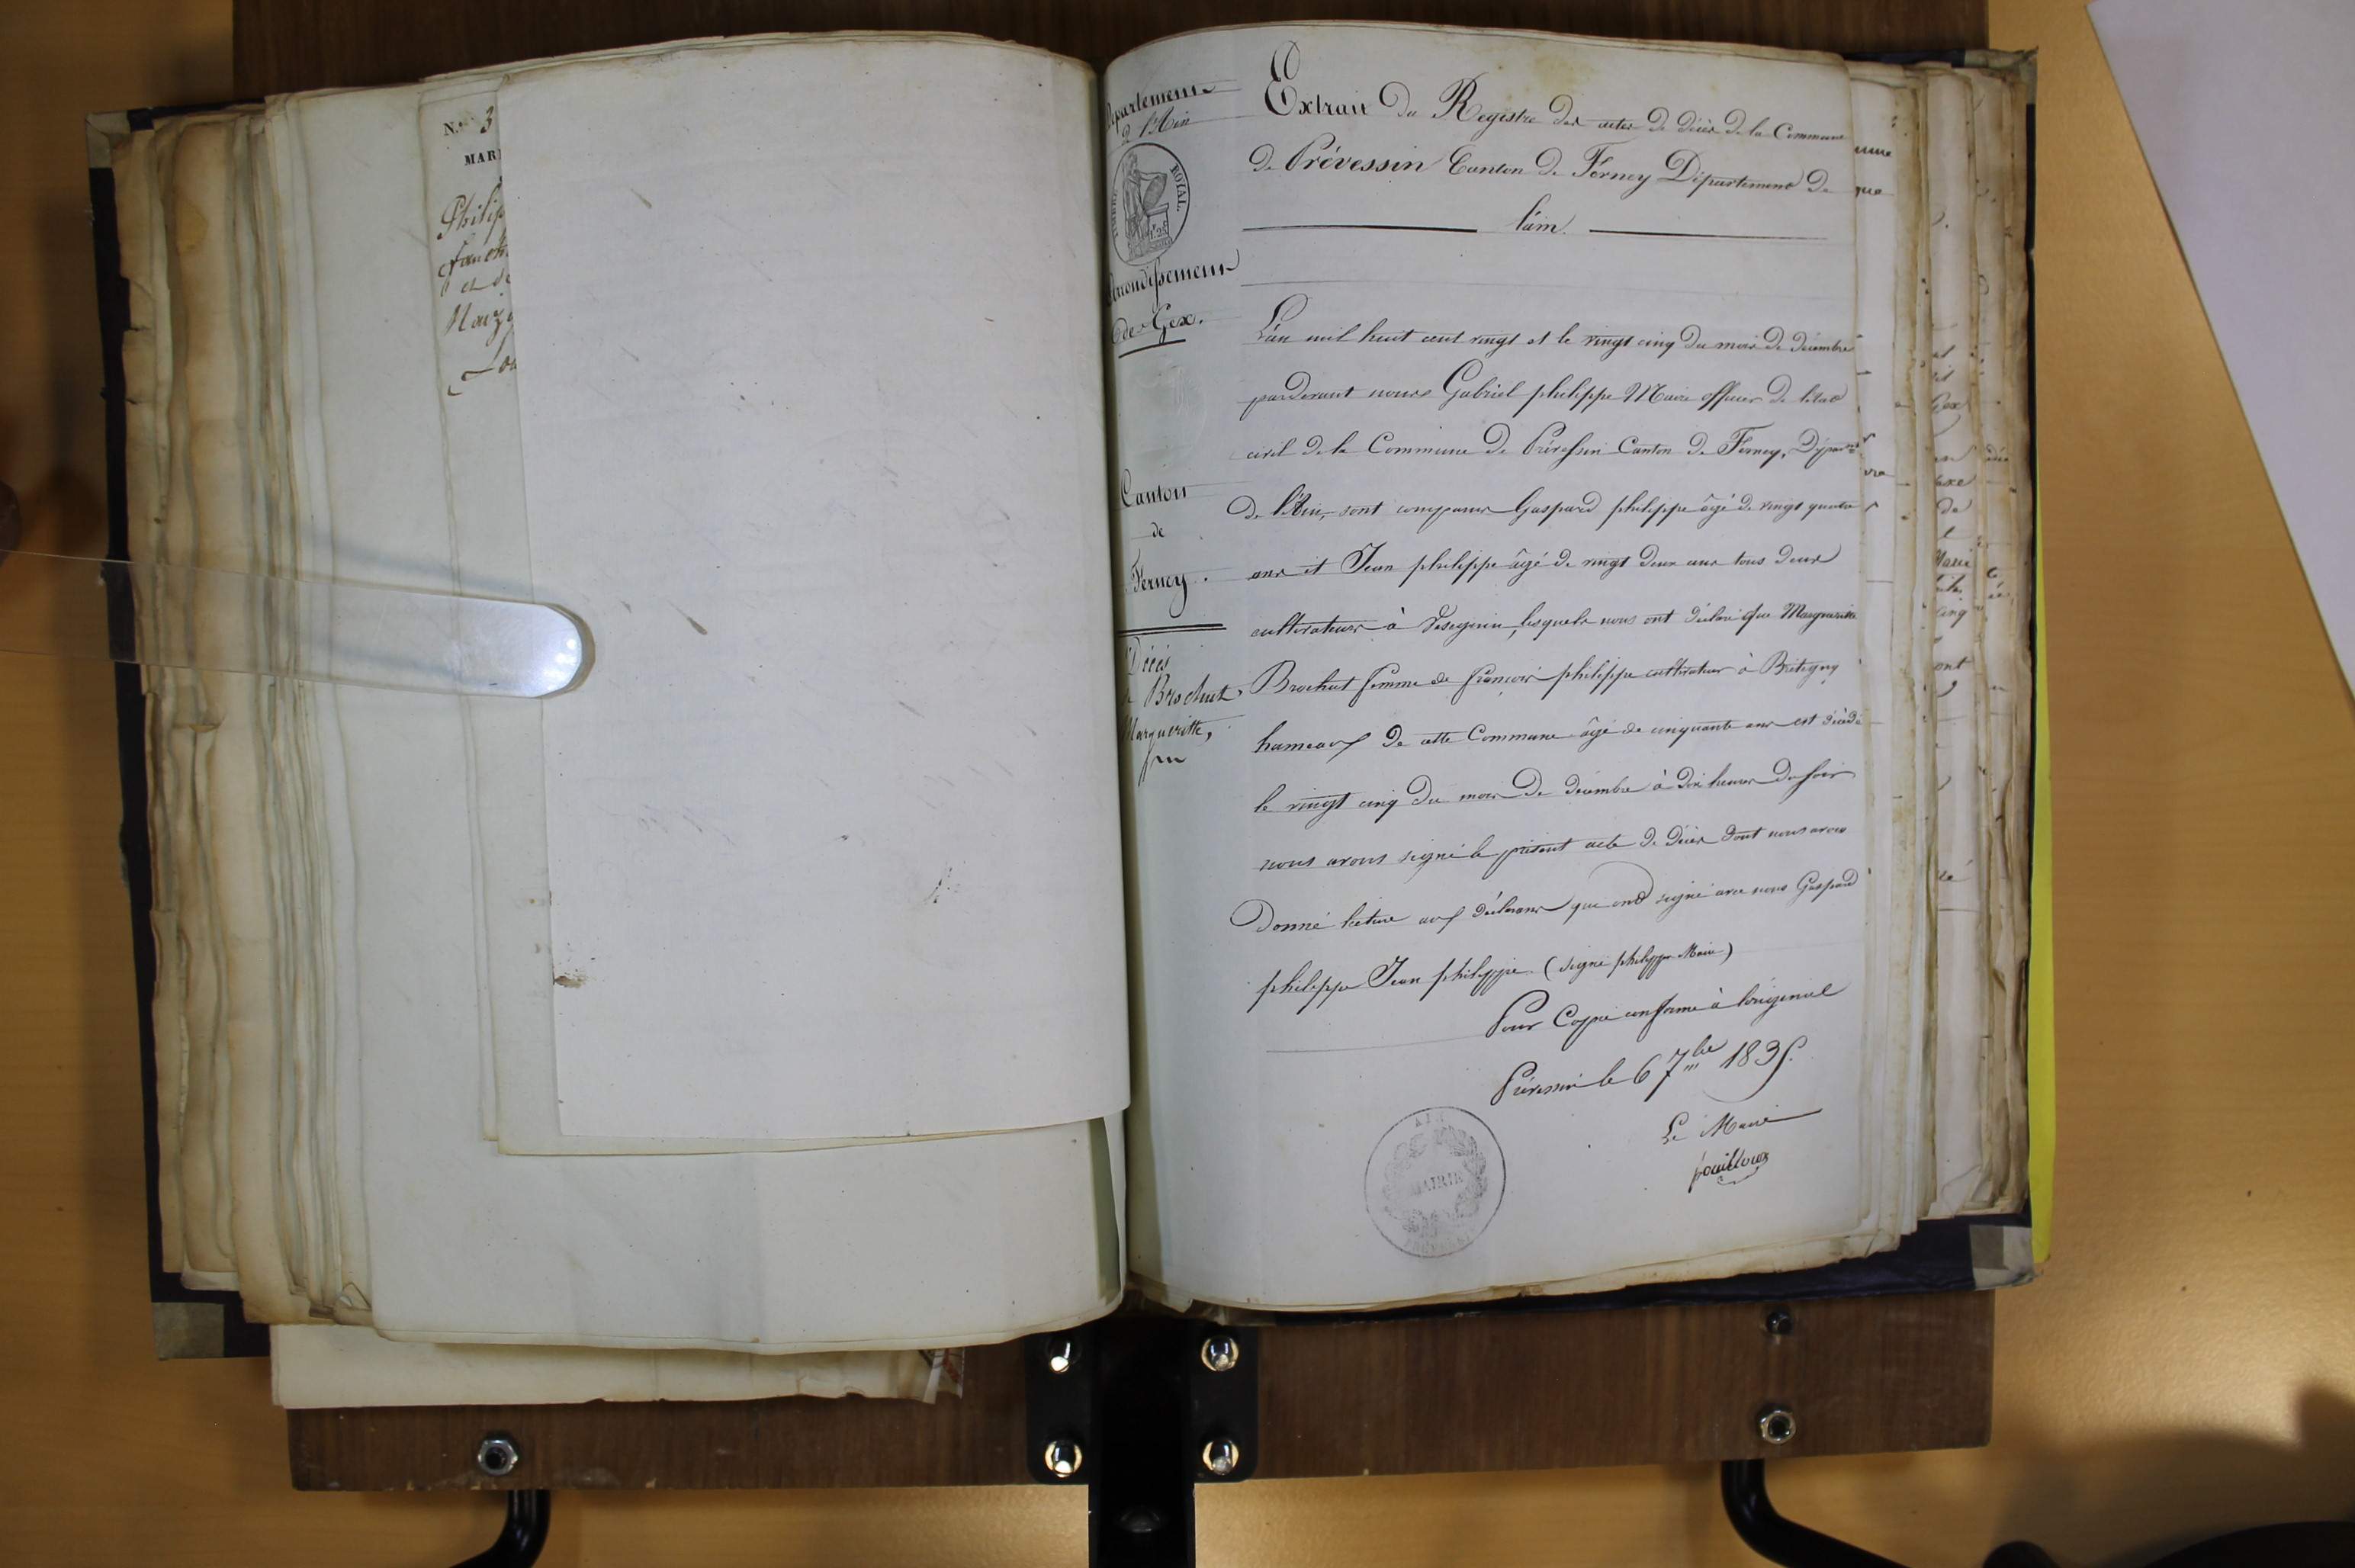 N.° 3
MAR
Philip
et de
Naiz
Departement
d l'Ain
TIMBRE ROYAL.
Arrondissement
de Gex.
Canton
de
Ferney.
Décès
de Brochut
Margueritte,
Extrait du Registre des actes de décès de la Commune
de Prévessin Canton de Ferney Département de
l'ain.
L'an mil huit cent vingt et le vingt cinq du mois de décembre
pardevant nous Gabriel philippe Maire officier de l'état
civil de la Commune de Prévessin Canton de Ferney, Départ
de l'Ain, sont comparus Gaspard philippe âgé de vingt quatre
ans et Jean philippe âgé de vingt deux ans tous deux
cultivateurs à lesquels nous ont déclaré que Margueritte
Brochut femme de françois philippe cultivateur à Brétigny
hameaux de cette Commune âgé de cinquante ans est décédé
le vingt cinq du mois de décembre à dix heures du soir
nous avons signé le présent acte de décès dont nous avons
Donné lecture aux déclarans qui ont signé avec nous Gaspard
philippe Jean philippe (signé philippe Maire)
Pour Copie conforme à l'original
Prévessin le 6 7bre 1835.
Le Maire
pouilloux
AIN
MAIRIE